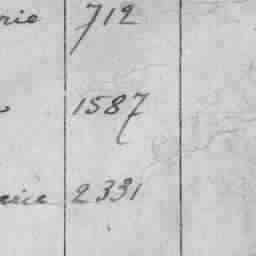 rio 712
1587
2331